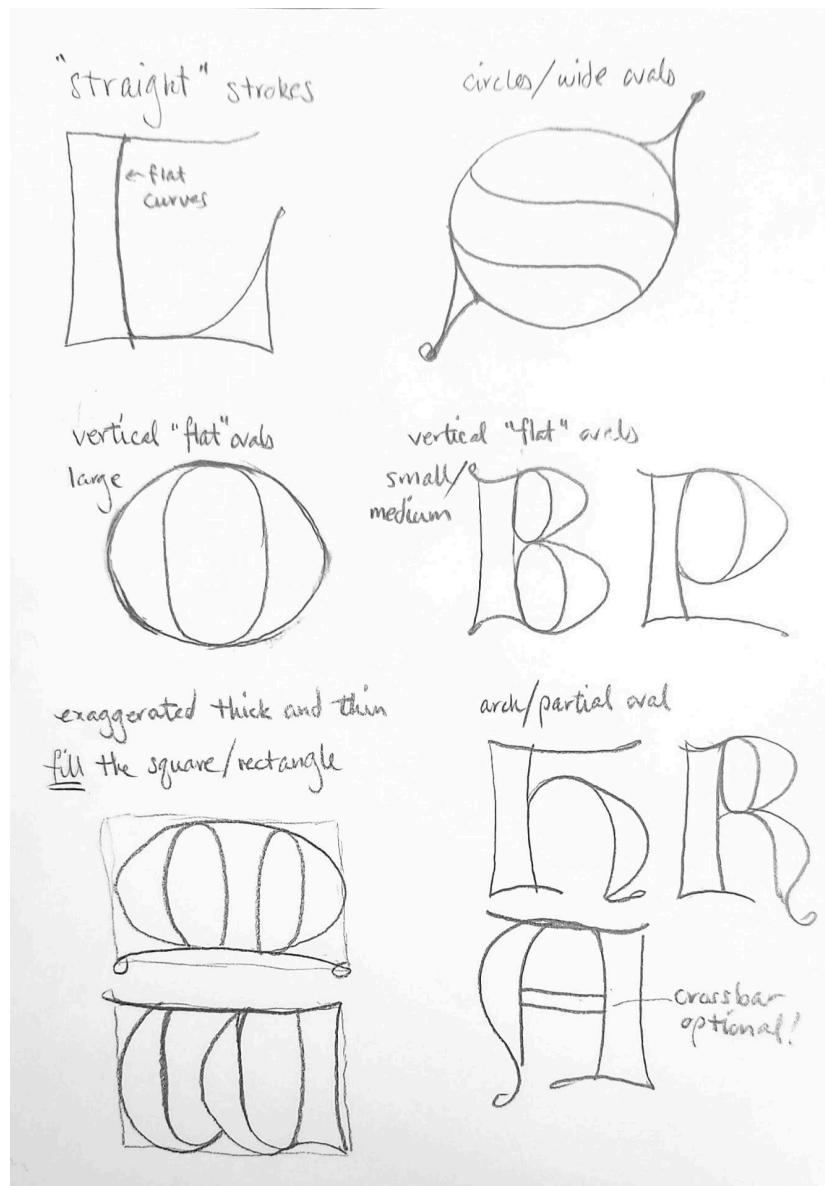 "straight" strokes
L
←flat
curves
circles/wide ovals
S
vertical "flat" ovals
large
O
vertical "flat" ovals
small/
medium
B P
exaggerated thick and thin
fill the square/rectangle
M
W
arch/partial oval
h R
A
crossbar
optional!